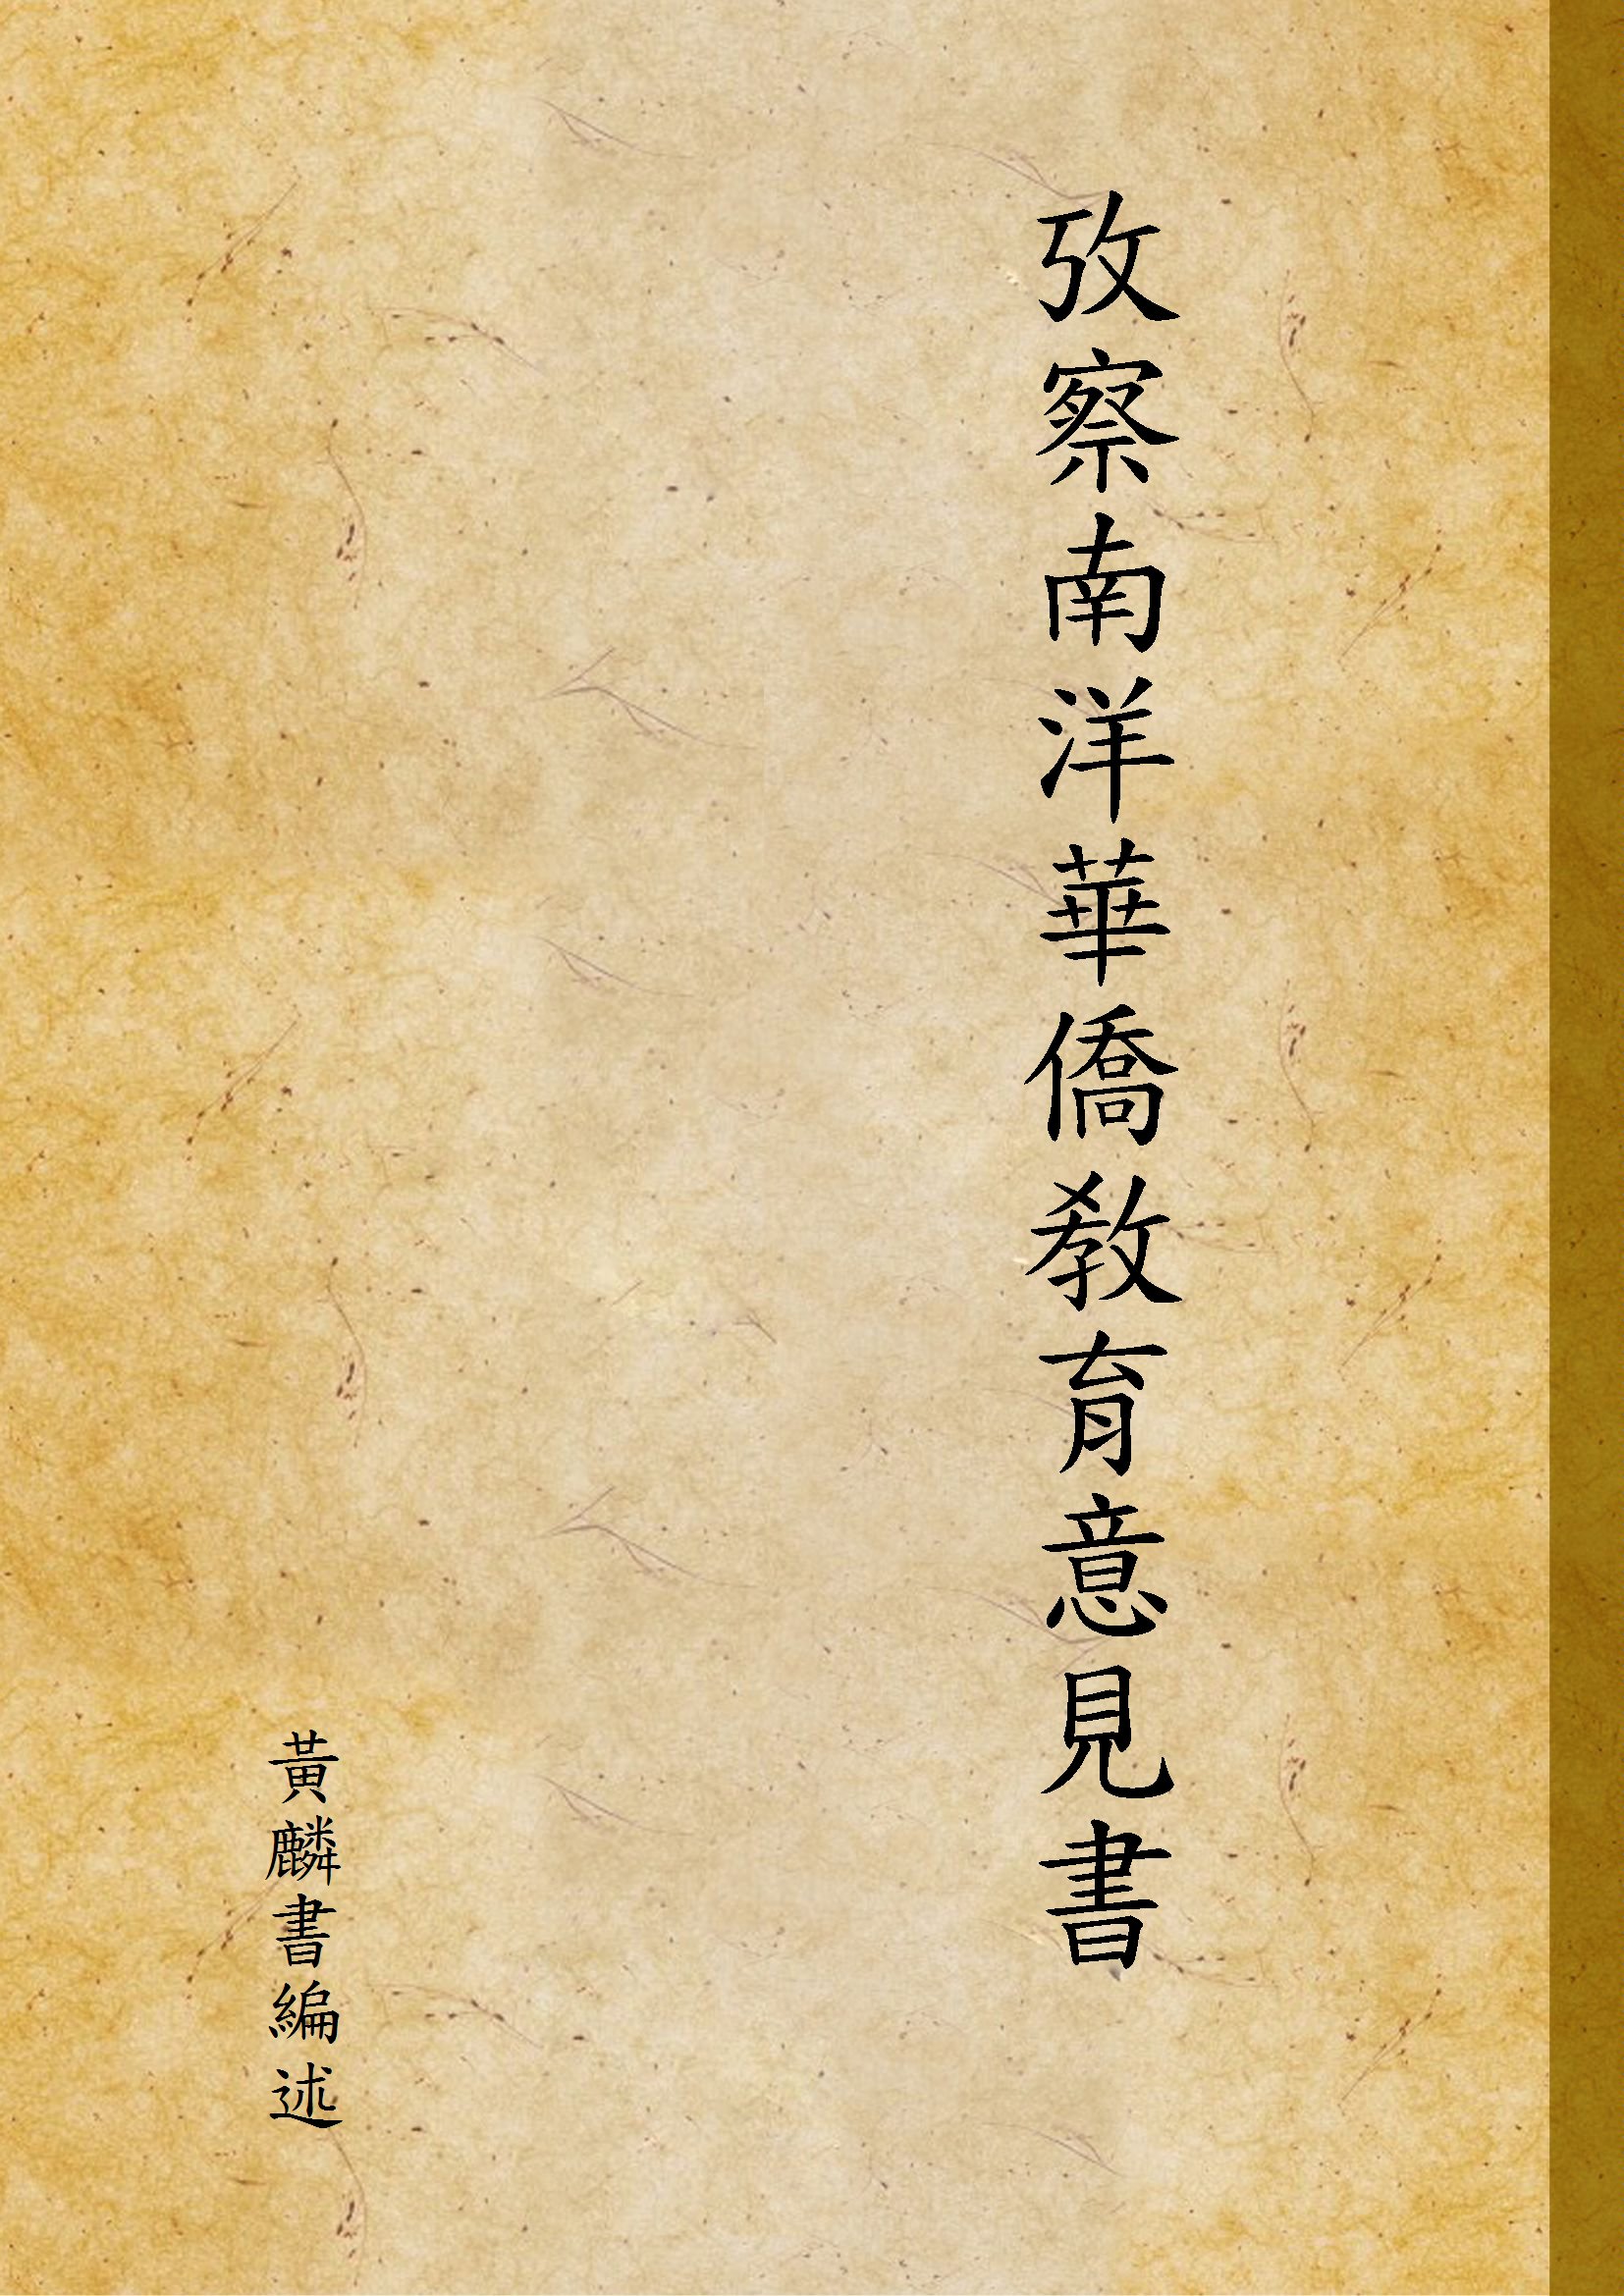 攷察南洋華僑敎育意見書
黃麟書編述